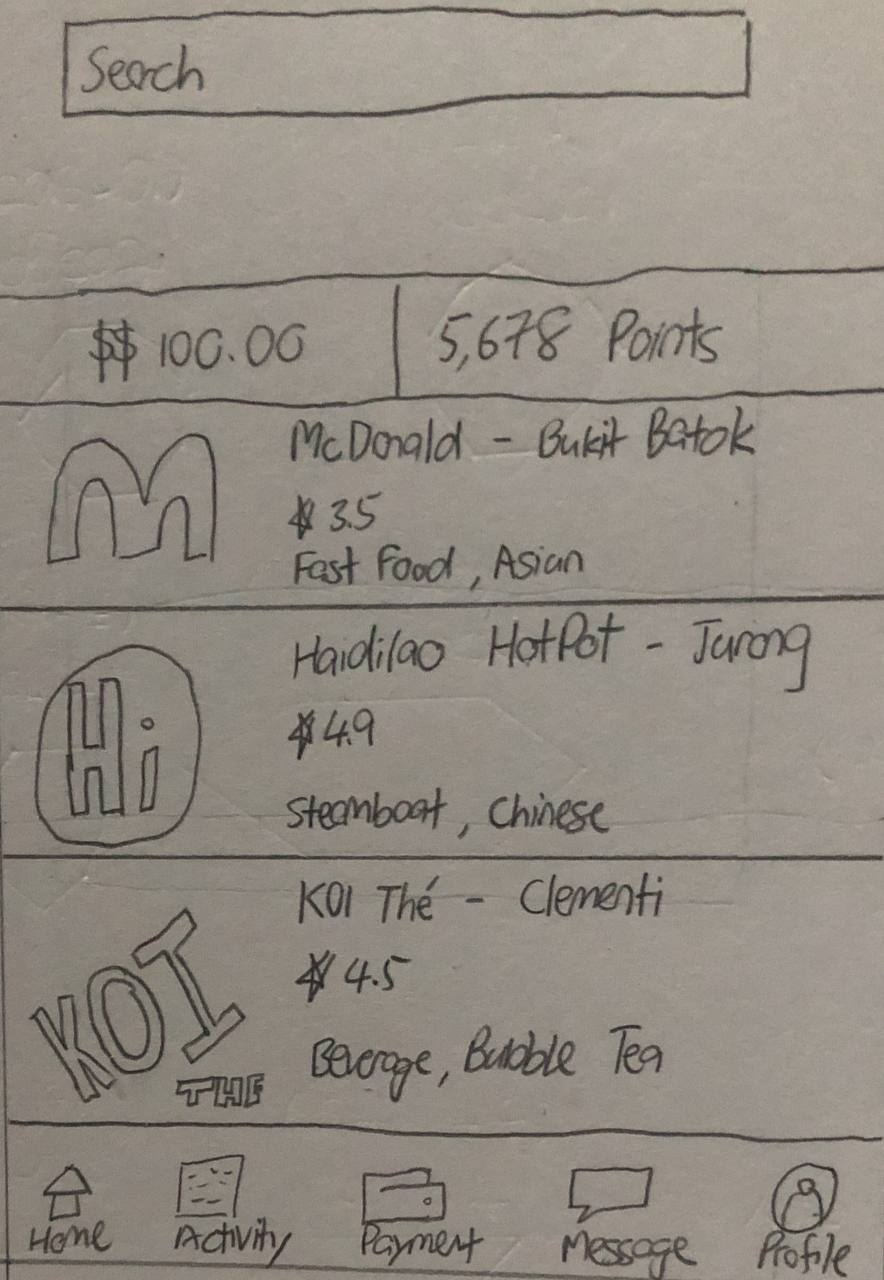 Search
$$ 100.00
5,678 Points
M
McDonald - Bukit Batok
★ 3.5
Fast Food, Asian
Hi
Haidilao HotPot - Jurong
★ 4.9
Steamboat, Chinese
KOI
THE
KOI Thé - Clementi
★ 4.5
Beverage, Bubble Tea
Home
Activity
Payment
Message
Profile